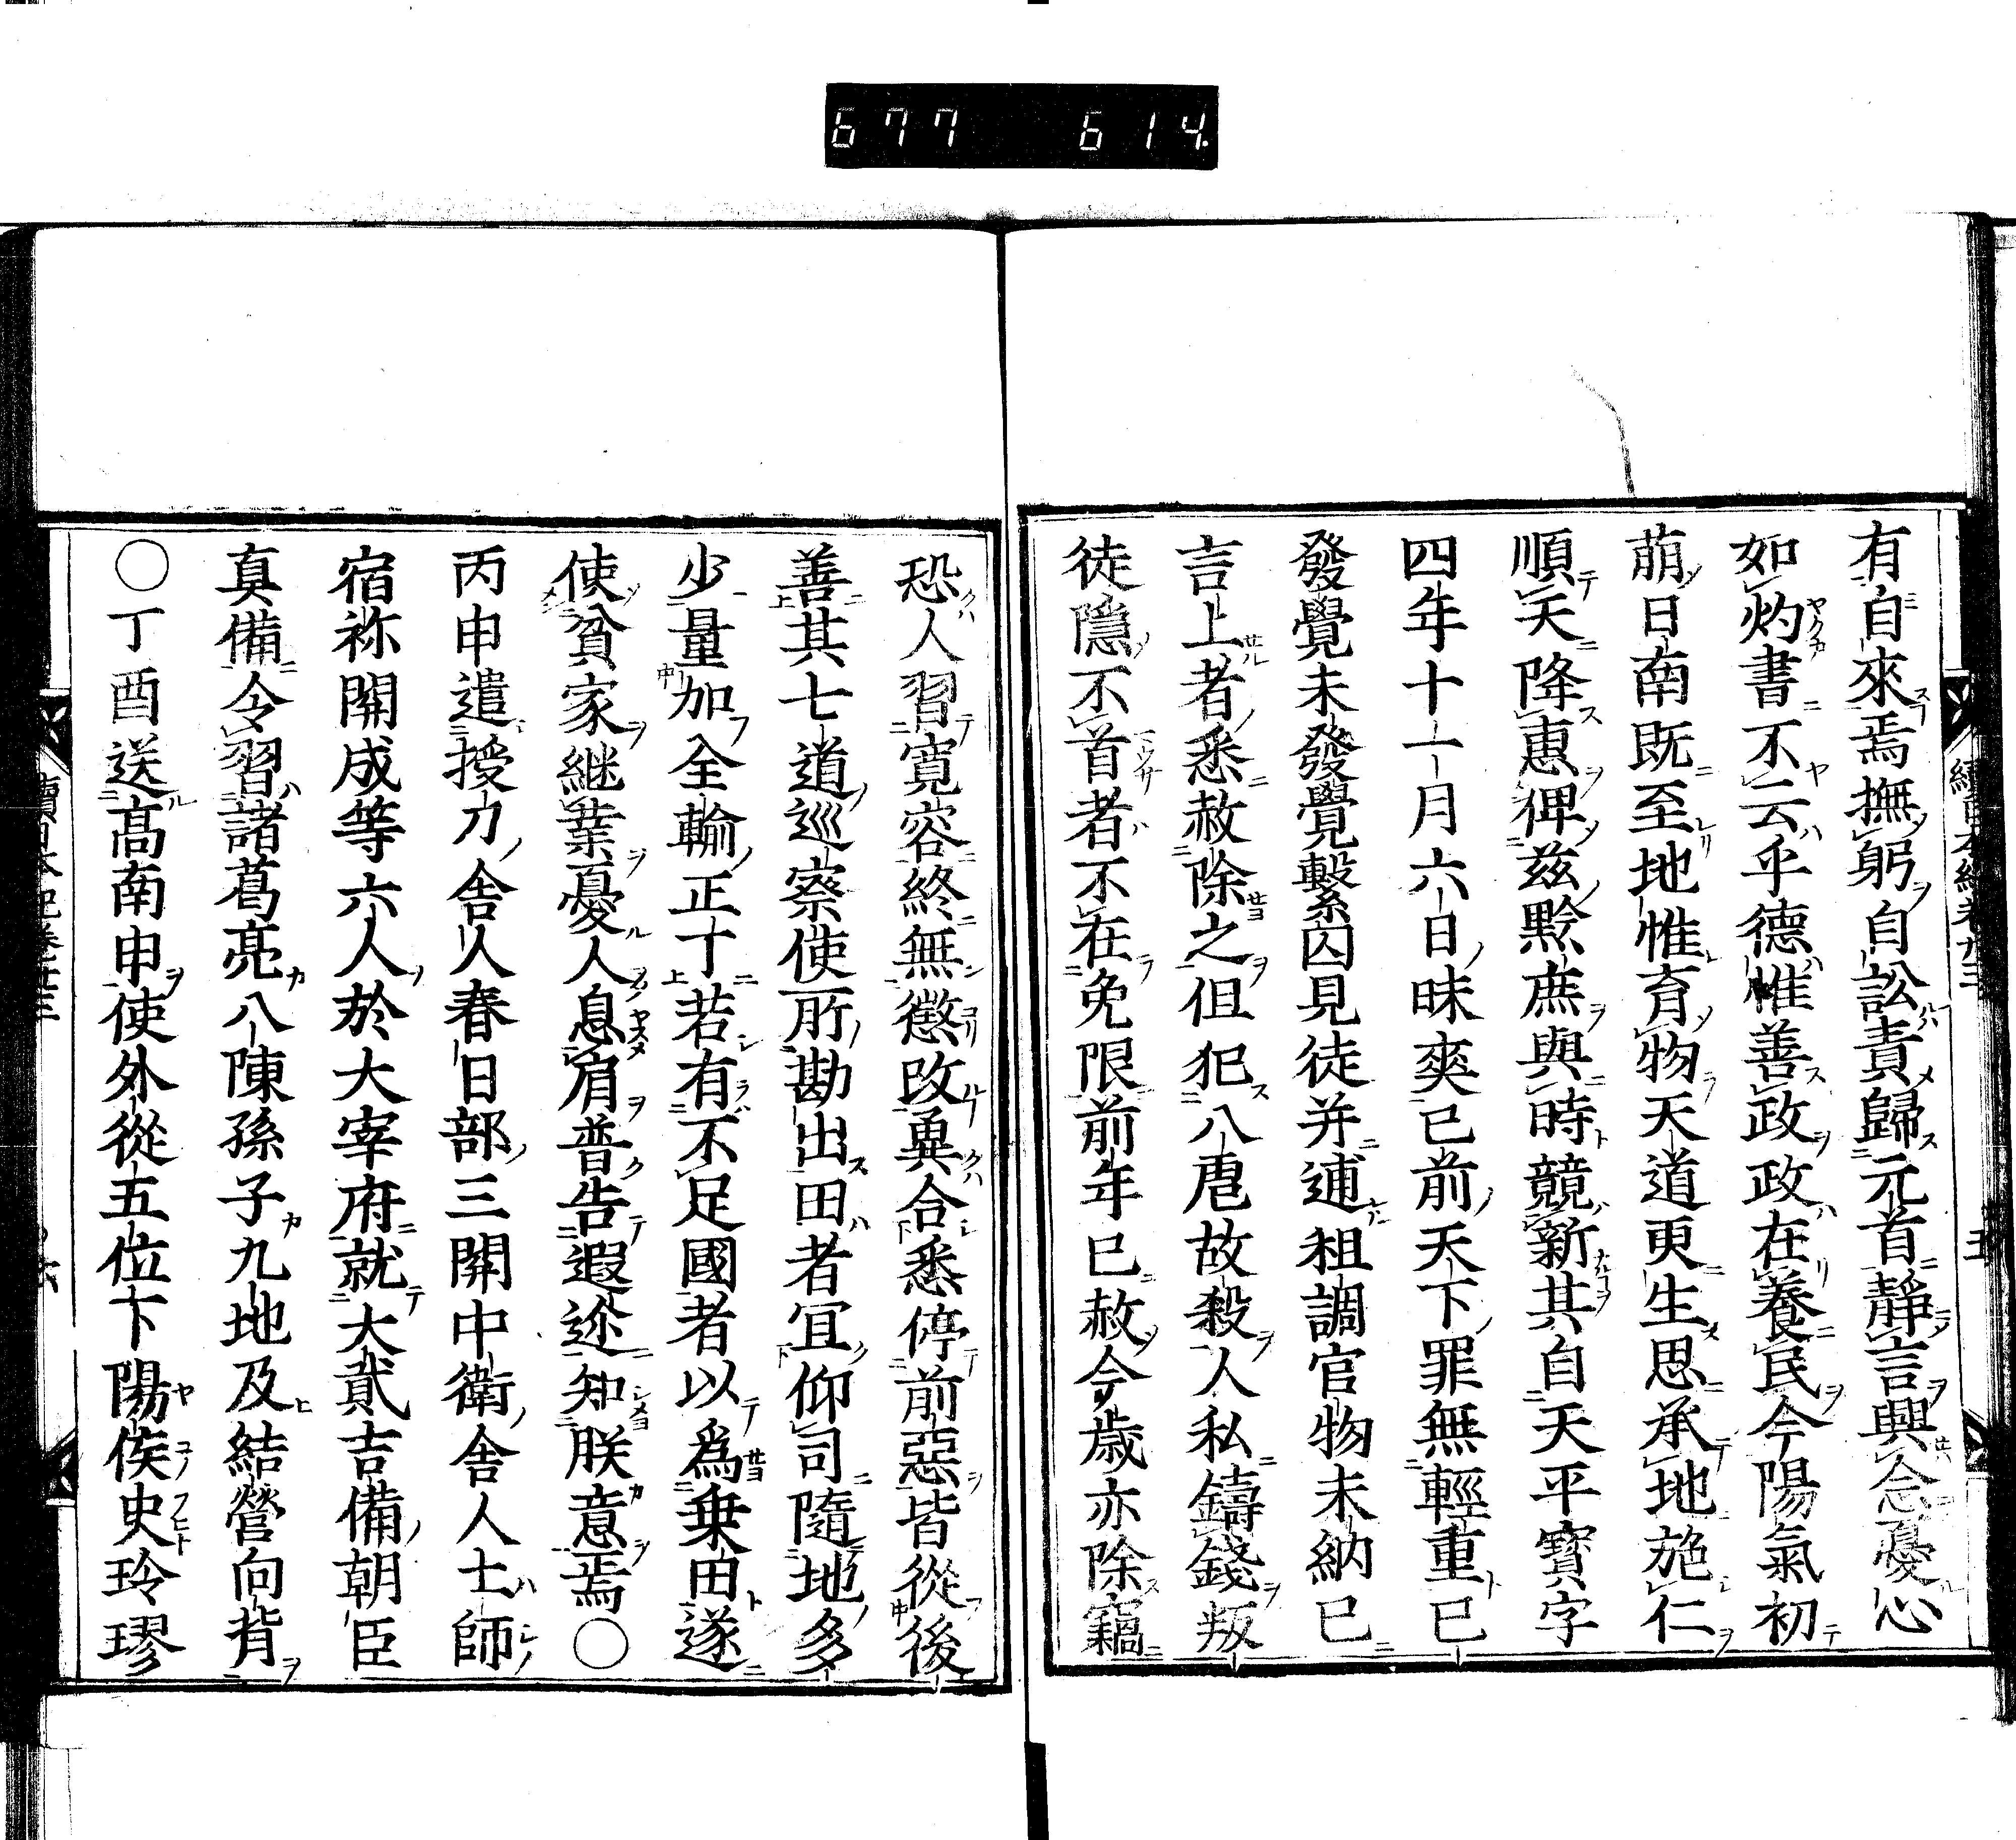 677 614.
有自來焉撫躬自訟責歸元首靜言興念憂心
如灼書不云乎德惟善政政在養民今陽氣初
萠日南既至地惟育物天道更生思承地施仁
順天降惠俾茲黔庶與時競新其自天平寳字
四年十一月六日昧爽已前天下罪無輕重已
發覺未發覺繫囚見徒并逋租調官物未納已
言上者悉赦除之但犯八虐故殺人私鑄錢叛
徒隱不首者不在免限前年已赦今歳亦除竊
恐人習寛容終無懲改兾合悉停前惡皆從後
善其七道巡察使所勘出田者宜仰司隨地多
少量加全輸正丁若有不足國者以爲乗田遂
使貧家継業憂人息肩普告遐迩知朕意焉〇
丙申遣授刀舎人春日部三關中衛舎人土師
宿祢關成等六人於大宰府就大貳吉備朝臣
真備令習諸葛亮八陳孫子九地及結營向背
〇丁酉送髙南申使外從五位下陽侯史玲璆